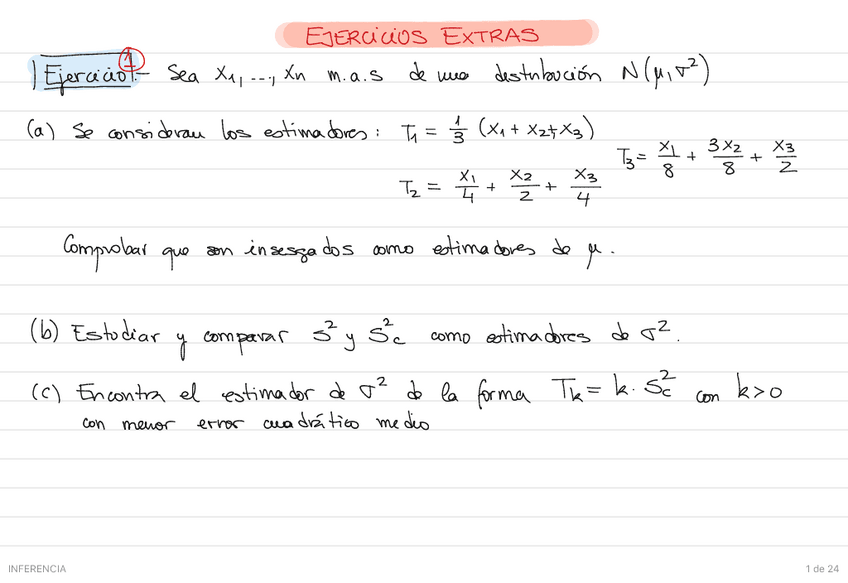 EJERCICIOS EXTRAS
Ejercicio 1.- Sea X₁, ..., Xn m.a.s de una distribución N(μ, σ²)
(a) Se consideran los estimadores: T₁ = 1/3 (X₁ + X₂ + X₃)
T₃ = X₁/8 + 3X₂/8 + X₃/2
T₂ = X₁/4 + X₂/2 + X₃/4
Comprobar que son insesgados como estimadores de μ.
(b) Estudiar y comparar S² y S²c como estimadores de σ².
(c) Encontra el estimador de σ² de la forma Tk = k · S²c con k>0
con menor error cuadrático medio
INFERENCIA
1 de 24